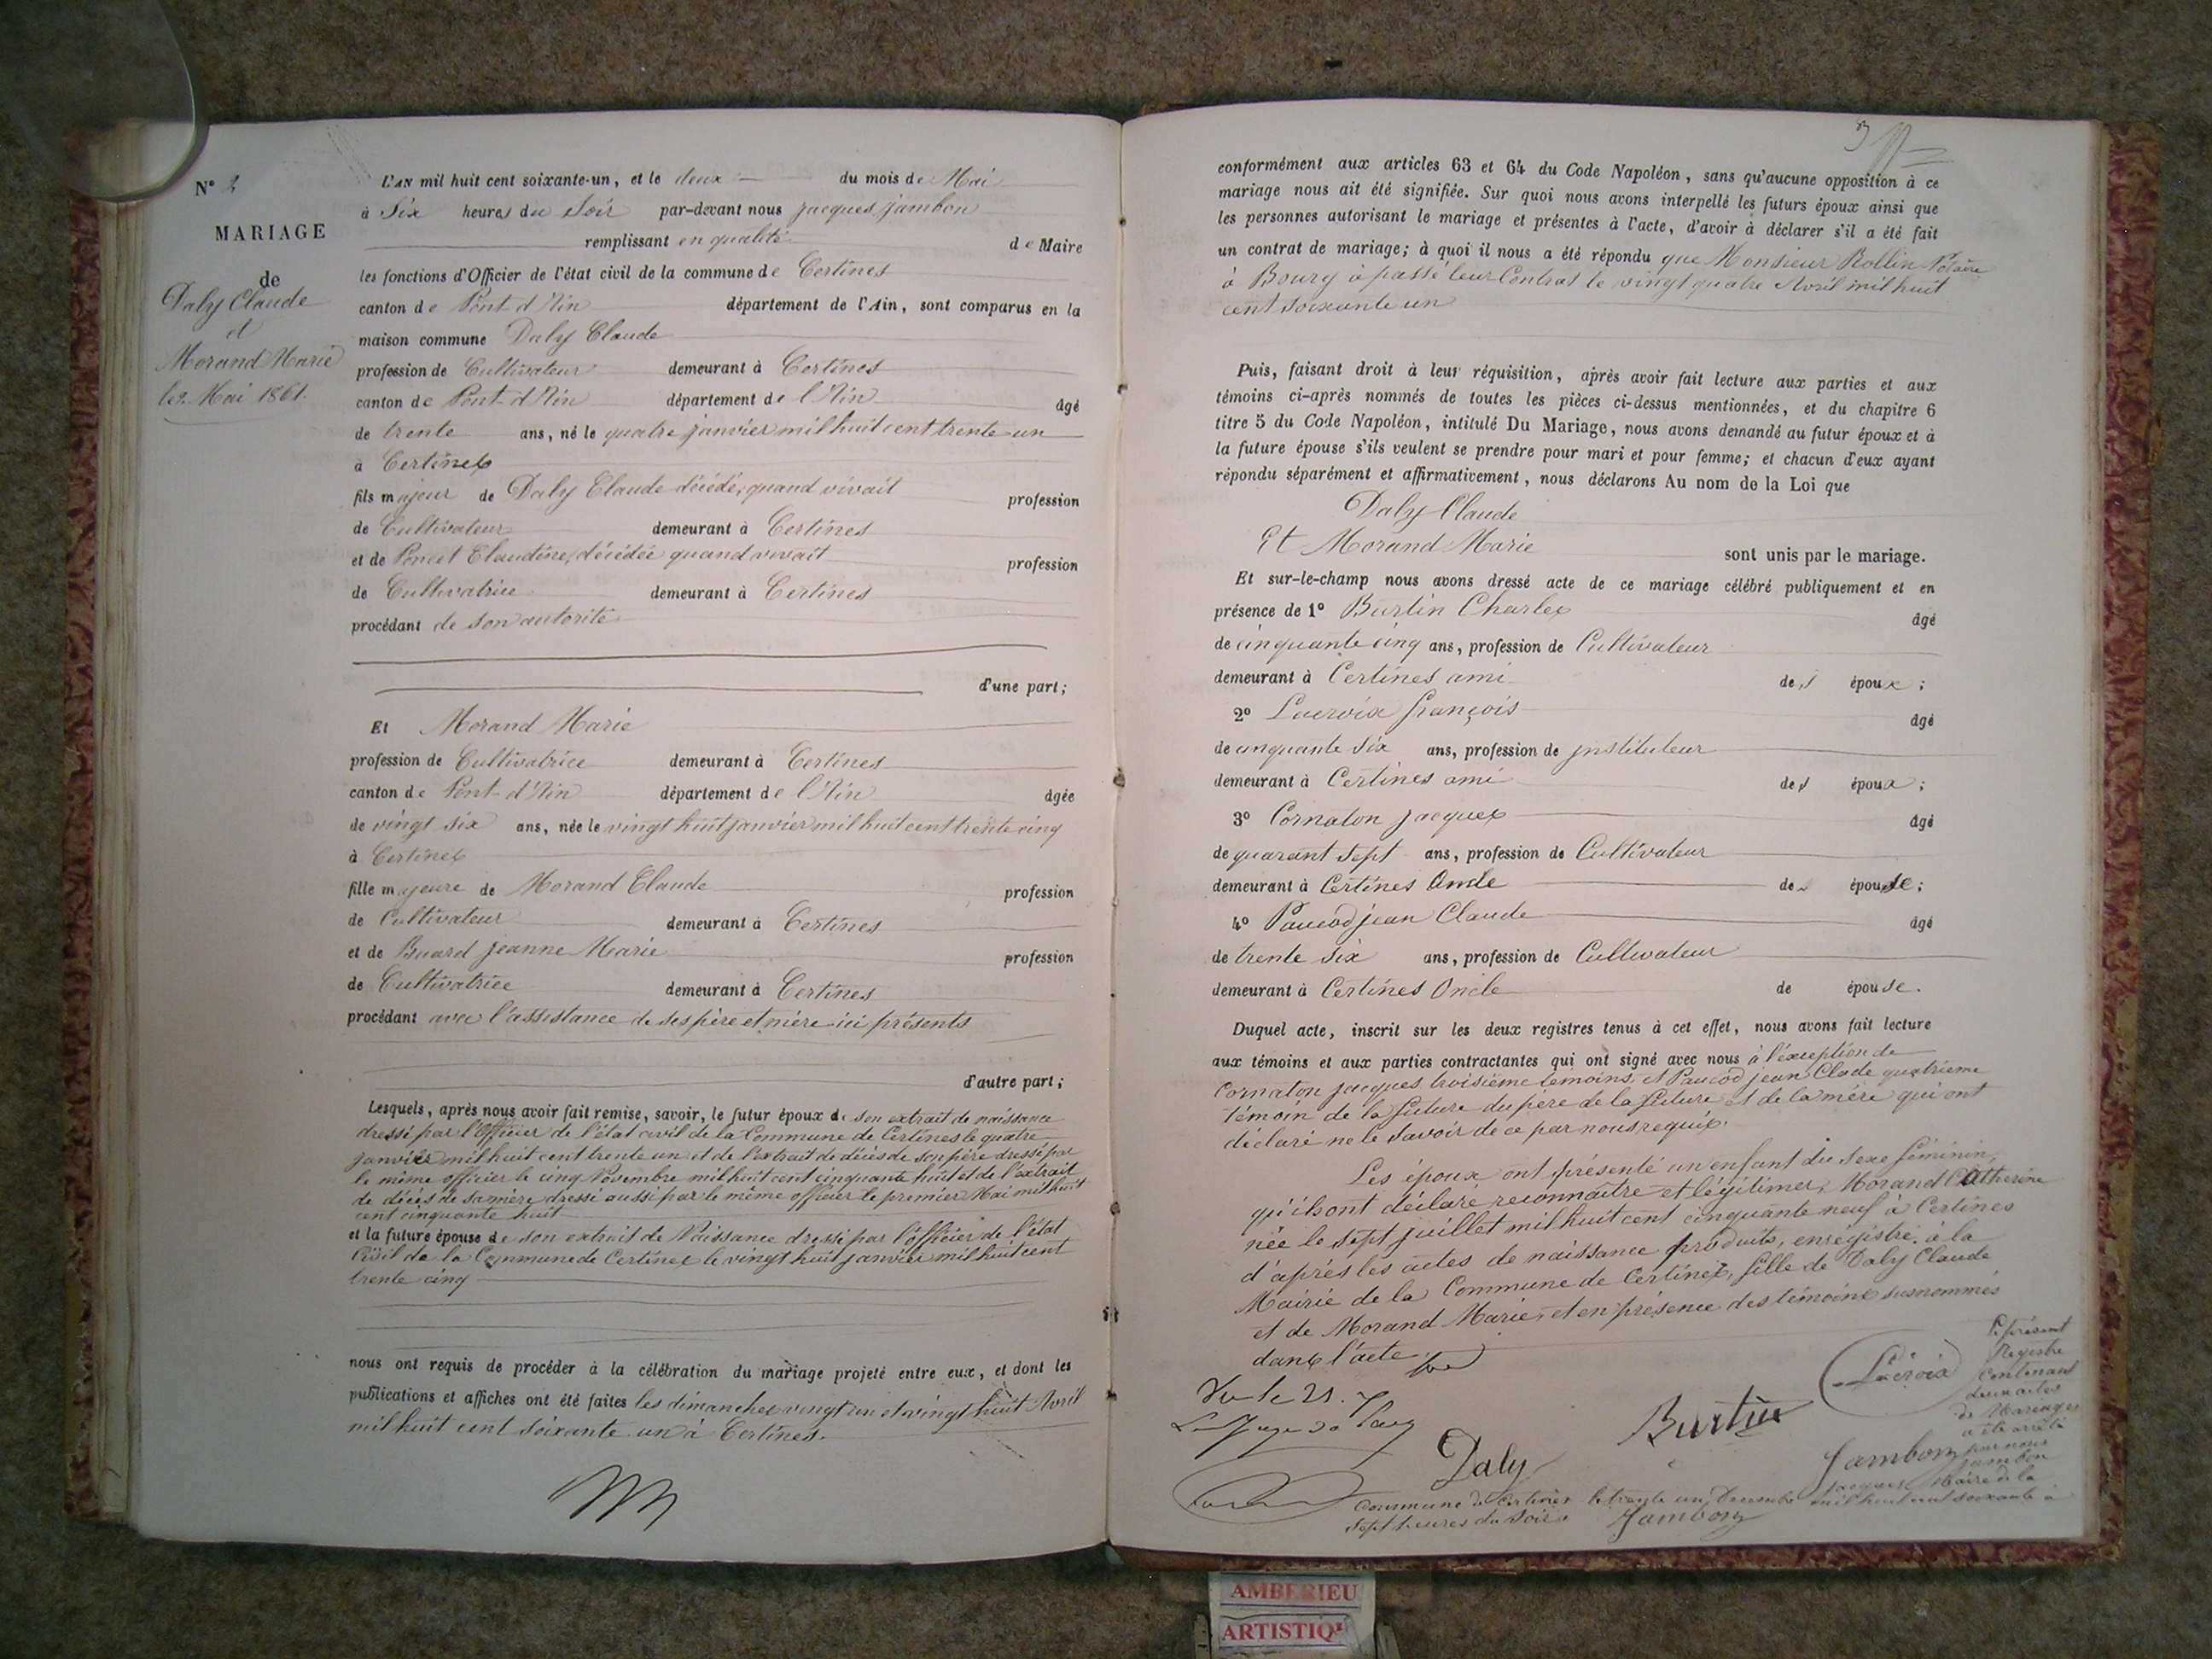 N° 2
MARIAGE
de
Daly Claude
et
Morand Marie
le 2 Mai 1861.
L'AN mil huit cent soixante-un, et le deux du mois de Mai
à Six heures du Soir par-devant nous jacques jambon
remplissant en qualité de Maire
les fonctions d'Officier de l'état civil de la commune de Certines
canton de Pont d'Ain département de l'Ain, sont comparus en la
maison commune Daly Claude
profession de Cultivateur demeurant à Certines
canton de Pont-d'Ain département de l'Ain âgé
de trente ans, né le quatre janvier mil huit cent trente un
à Certines
fils majeur de Daly Claude décédé, quand vivait profession
de Cultivateur demeurant à Certines
et de Poncet Claudine, décédée quand vivait profession
de Cultivatrice demeurant à Certines
procédant de son autorité
d'une part;
Et Morand Marie
profession de Cultivatrice demeurant à Certines
canton de Pont-d'Ain département de l'Ain âgée
de vingt six ans, née le vingt huit janvier mil huit cent trente cinq
à Certines
fille majeure de Morand Claude profession
de Cultivateur demeurant à Certines
et de Buard jeanne Marie profession
de Cultivatrice demeurant à Certines
procédant avec l'assistance de ses père et mère ici présents
d'autre part;
Lesquels, après nous avoir fait remise, savoir, le futur époux de son extrait de naissance
dressé par l'Officier de l'état civil de la Commune de Certines le quatre
janvier mil huit cent trente un et de l'extrait de décès de son père dressé par
le même officier le cinq Novembre mil huit cent cinquante huit et de l'extrait
de décès de sa mère dressé aussi par le même officier le premier Mai mil huit
cent cinquante huit
et la future épouse de son extrait de Naissance dressé par l'officier de l'état
Civil de la Commune de Certines le vingt huit janvier mil huit cent
trente cinq
nous ont requis de procéder à la célébration du mariage projeté entre eux, et dont les
publications et affiches ont été faites les dimanches vingt un et vingt huit Avril
mil huit cent soixante un à Certines.
conformément aux articles 63 et 64 du Code Napoléon, sans qu'aucune opposition à ce
mariage nous ait été signifiée. Sur quoi nous avons interpellé les futurs époux ainsi que
les personnes autorisant le mariage et présentes à l'acte, d'avoir à déclarer s'il a été fait
un contrat de mariage; à quoi il nous a été répondu que Monsieur Rollin Notaire
à Bourg à passé leur Contrat le vingt quatre Avril mil huit
cent soixante un
Puis, faisant droit à leur réquisition, après avoir fait lecture aux parties et aux
témoins ci-après nommés de toutes les pièces ci-dessus mentionnées, et du chapitre 6
titre 5 du Code Napoléon, intitulé Du Mariage, nous avons demandé au futur époux et à
la future épouse s'ils veulent se prendre pour mari et pour femme; et chacun d'eux ayant
répondu séparément et affirmativement, nous déclarons Au nom de la Loi que
Daly Claude
Et Morand Marie sont unis par le mariage.
Et sur-le-champ nous avons dressé acte de ce mariage célébré publiquement et en
présence de 1° Burtin Charles âgé
de cinquante cinq ans, profession de Cultivateur
demeurant à Certines ami des époux;
2° Lacroix françois âgé
de cinquante six ans, profession de jnstituteur
demeurant à Certines ami des époux;
3° Cornaton jacques âgé
de quarant sept ans, profession de Cultivateur
demeurant à Certines Oncle de épouse;
4° Paucod jean Claude âgé
de trente six ans, profession de Cultivateur
demeurant à Certines Oncle de épouse.
Duquel acte, inscrit sur les deux registres tenus à cet effet, nous avons fait lecture
aux témoins et aux parties contractantes qui ont signé avec nous à l'éxception de
Cornaton jacques troisième temoins, et Paucod jean Clade quatrième
témoin de la future du père de la future et de la mère qui ont
déclaré ne le savoir de ce par nous requis.
Les époux ont présenté un enfant du sexe féminin,
qu'ils ont déclare reconnaître et légitimer, Morand Catherine
née le sept juillet mil huit cent cinquante neuf à Certines
d'après les actes de naissance produits, enrégistré à la
Mairie de la Commune de Certines, fille de Daly Claude
et de Morand Marie, et en présence des témoins susnommés
dans l'acte
Vu le 21.
Le Juge de Paix
Daly
Burtin
Lacroix
Jambon
Le présent
Registre
Contenant
deux actes
de Mariages
a été arrêté
par nous
Jambon
Jacques Maire de la
Commune de Certines le trente un Decembre mil huit cent soixante à
sept heures du soir.
Jambon
AMBERIEU
ARTISTIQ